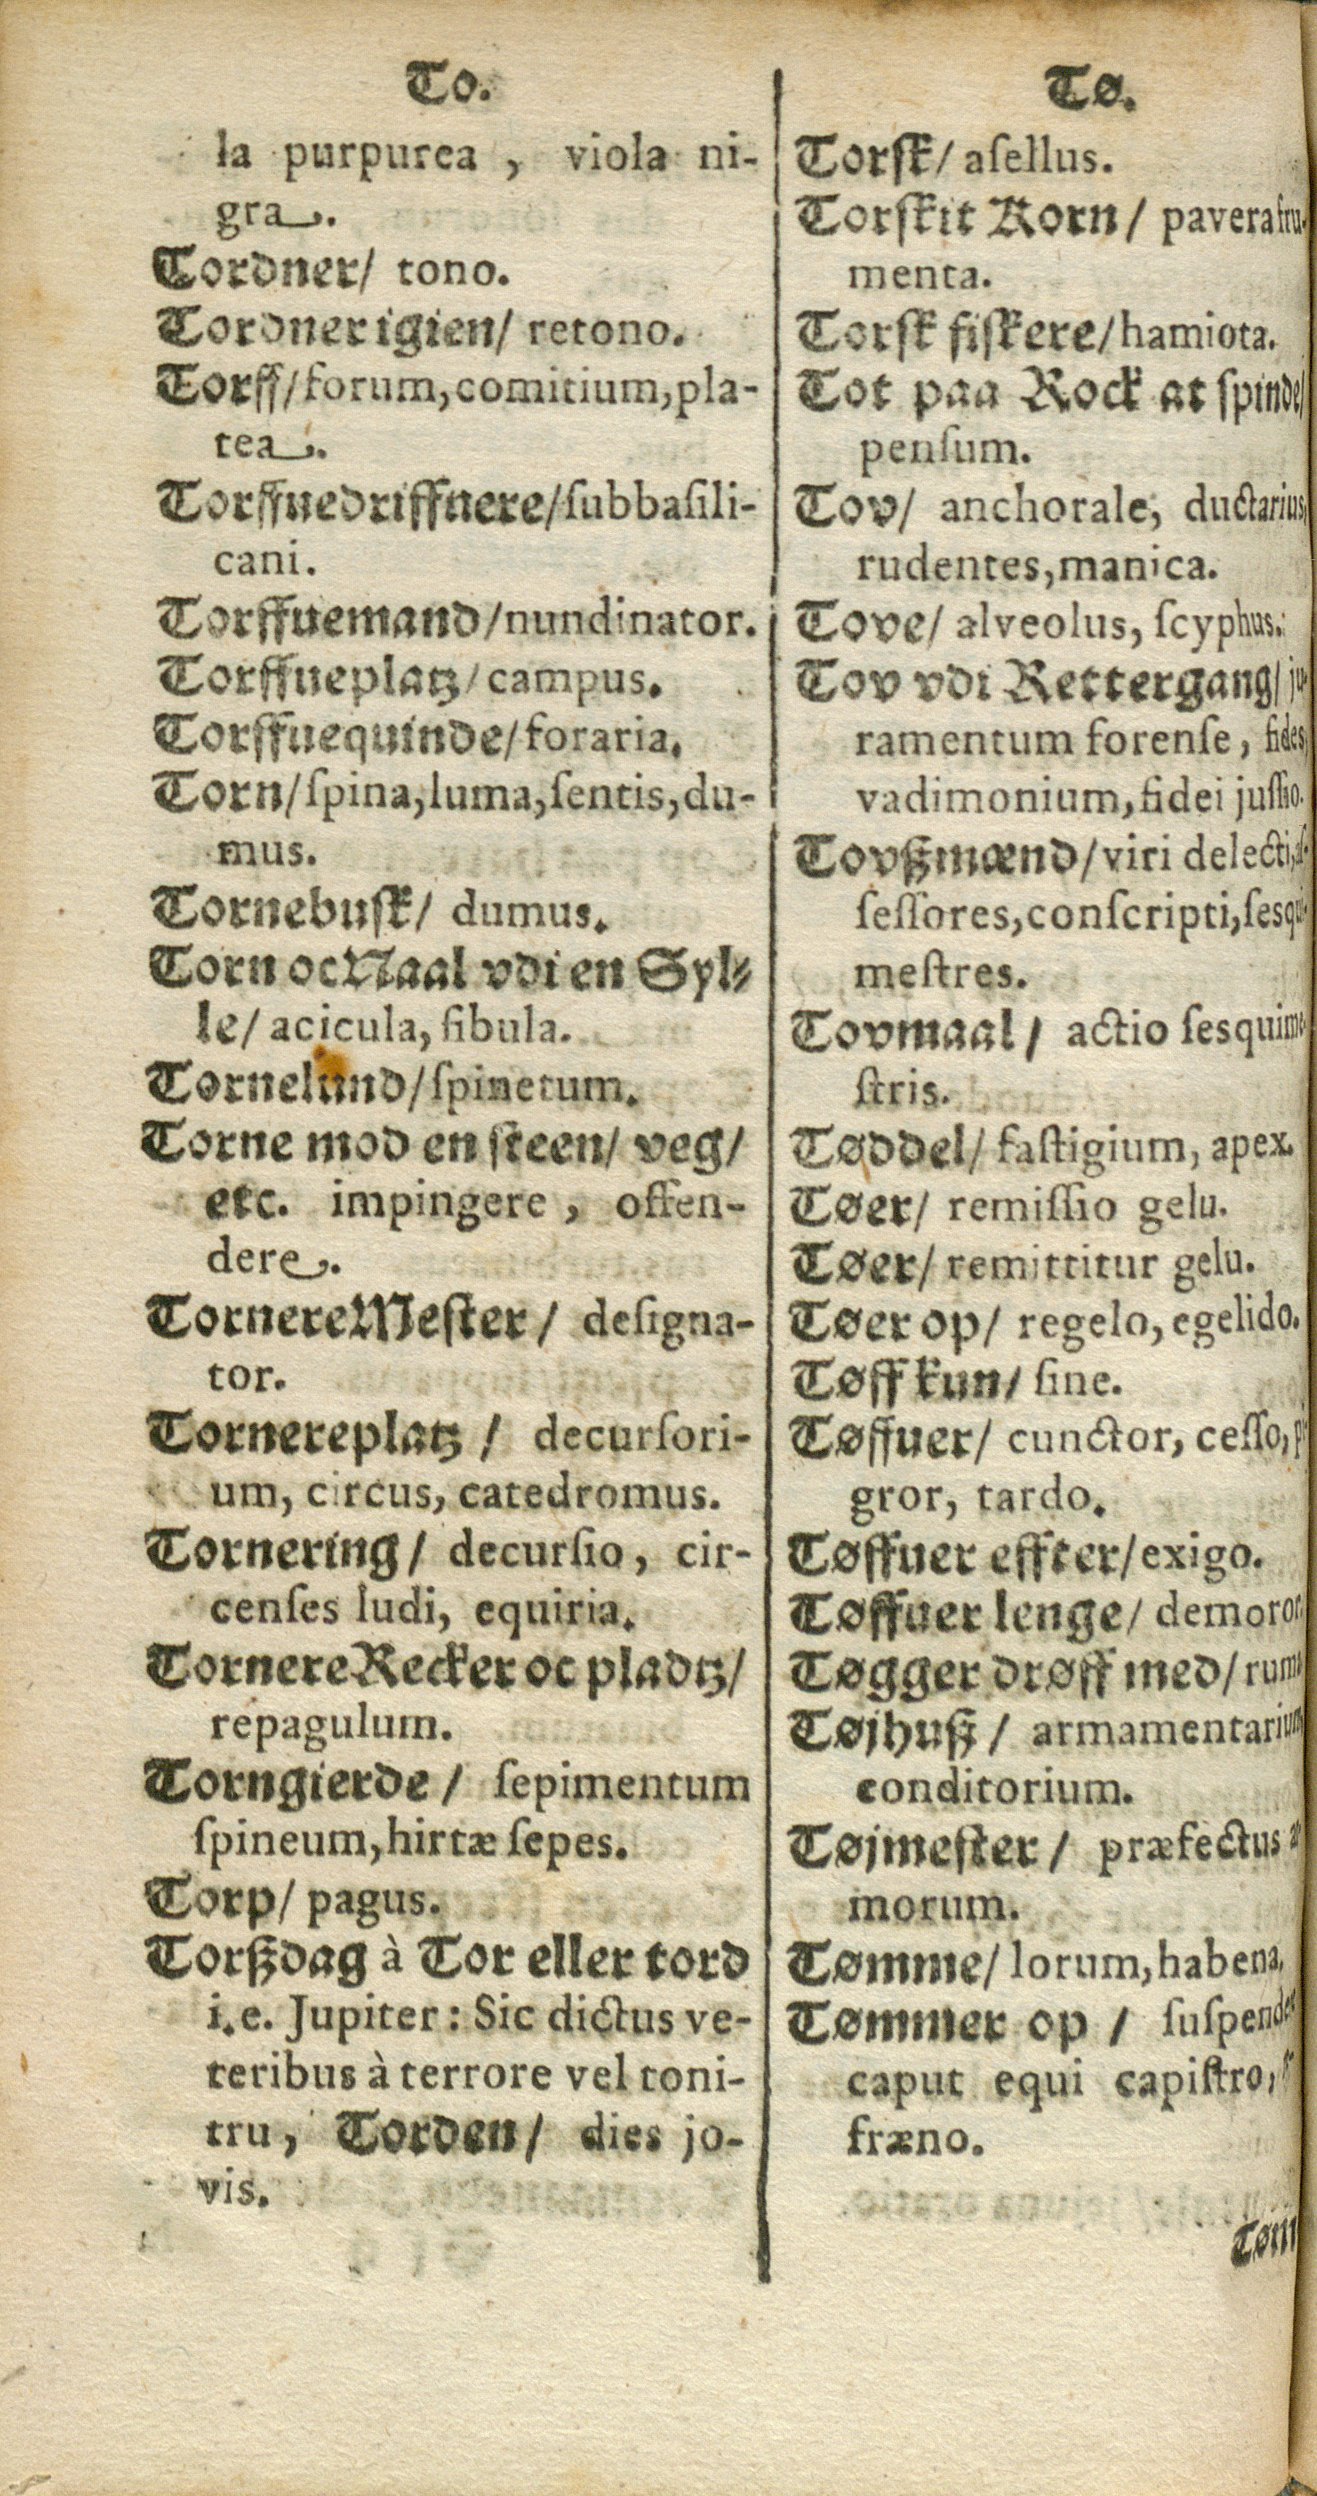 To.
la purpurea , viola ni-
gra.
Tordner/ tono.
Tordner igien/ retono.
Torff/forum,comitium,pla-
tea.
Torffuedriffuere/ſubbaſili-
cani.
Torffuemand/nundinator.
Torffueplatz/campus.
Torffuequinde/foraria.
Torn/ſpina,luma,ſentis,du-
mus.
Tornebuſk/ dumus.
Torn oc Naal vdi en Syl-
le/ acicula, fibula.
Tornelund/ſpinetum.
Torne mod en ſteen/ veg/
etc. impingere , offen-
dere.
TornereMeſter/ deſigna-
tor.
Tornereplatz / decurſori-
um, circus, catedromus.
Tornering/ decurſio, cir-
cenſes ludi, equiria.
TornereRecker oc pladtz/
repagulum.
Torngierde/ ſepimentum
ſpineum,hirtæ ſepes.
Torp/ pagus.
Torßdag à Tor eller tord
i.e. Jupiter: Sic dictus ve-
teribus à terrore vel toni-
tru, Torden/ dies jo-
vis.
Tø.
Torſk/ aſellus.
Torſkit Korn/ pavera fru-
menta.
Torſk fiſkere/hamiota.
Tot paa Rock at ſpinde/
penſum.
Tov/ anchorale, ductarius,
rudentes,manica.
Tove/ alveolus, ſcyphus.
Tov vdi Rettergang/ ju-
ramentum forenſe, fides,
vadimonium,fidei juſſio.
Tovßmænd/viri delecti,
ſeſſores,conſcripti,ſesqui-
meſtres.
Tovmaal/ actio ſesquime-
ſtris.
Tøddel/ faſtigium, apex.
Tøer/ remiſſio gelu.
Tøer/ remittitur gelu.
Tøer op/ regelo, egelido.
Tøff kun/ ſine.
Tøffuer/ cunctor, ceſſo, pi-
gror, tardo.
Tøffuer effter/exigo.
Tøffuer lenge/ demoror.
Tøgger drøff med/
Tøjhuß / armamentarium,
conditorium.
Tøjmeſter/ præfectus
morum.
Tømme/ lorum,habena.
Tømmer op / ſuſpendere
caput equi capiſtro,
fræno.
Tøm